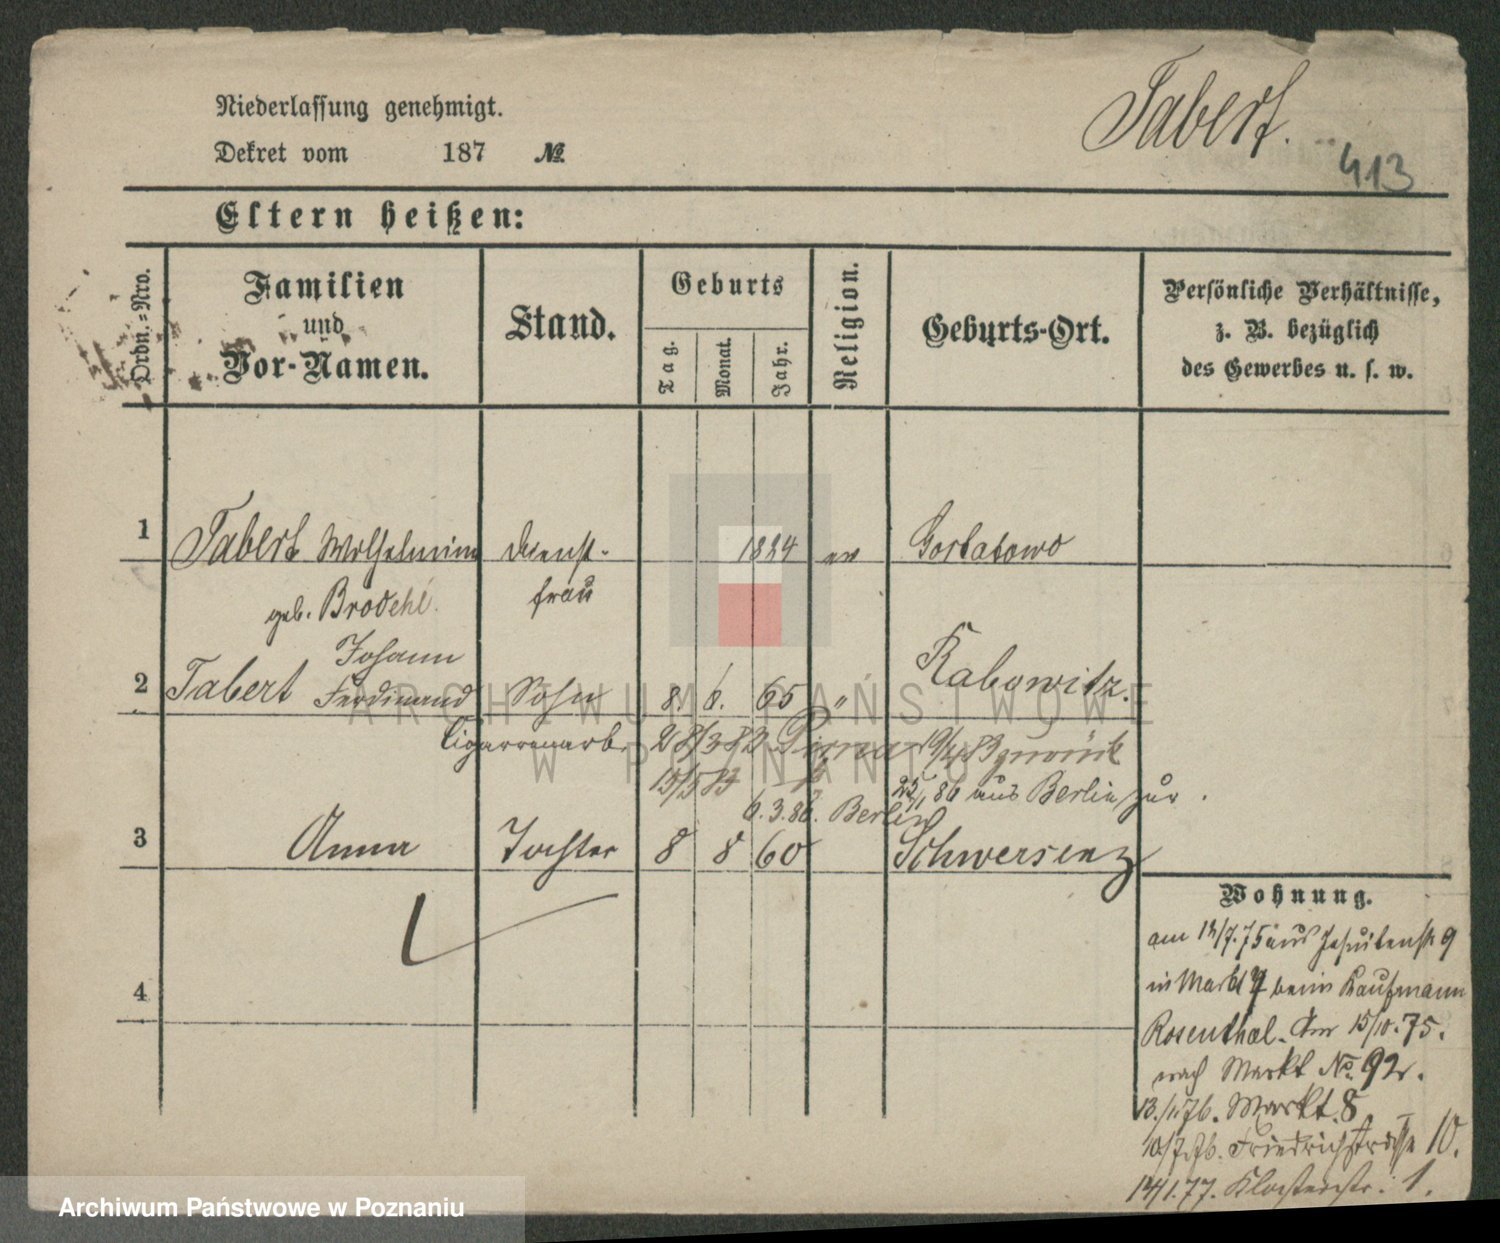 Niederlassung genehmigt.
Dekret vom 187 №
Tabert.
413
Eltern heißen:
Ordn.-Nro.
Familien
und
Vor-Namen.
Stand.
Geburts
Tag.
Monat.
Jahr.
Religion.
Geburts-Ort.
Persönliche Verhältnisse,
z. B. bezüglich
des Gewerbes u. s. w.
1 Tabert Wilhelmine Dienst- 1824 ev Gortatowo
geb. Brodehl. frau
Johann
2 Tabert Ferdinand Sohn 8. 8. 65 " Kabowitz.
Cigarrenarb. 28/3 82 19/4 83 zurück
15/5 83
25/1 86 aus Berlin zur.
6.3.86. Berlin
3 Anna Tochter 8 8 60 Schwersenz
4
Wohnung.
am 12/7.75 aus Jesuitenstr 9
in Markt 7 beim Kaufmann
Rosenthal. Am 15/10.75.
nach Markt No. 92.
13./1.76. Markt. 8
10/7.76. Friedrichstrasse 10.
14/1.77. Klosterstr. 1.
ARCHIWUM PAŃSTWOWE
W POZNANIU
Archiwum Państwowe w Poznaniu